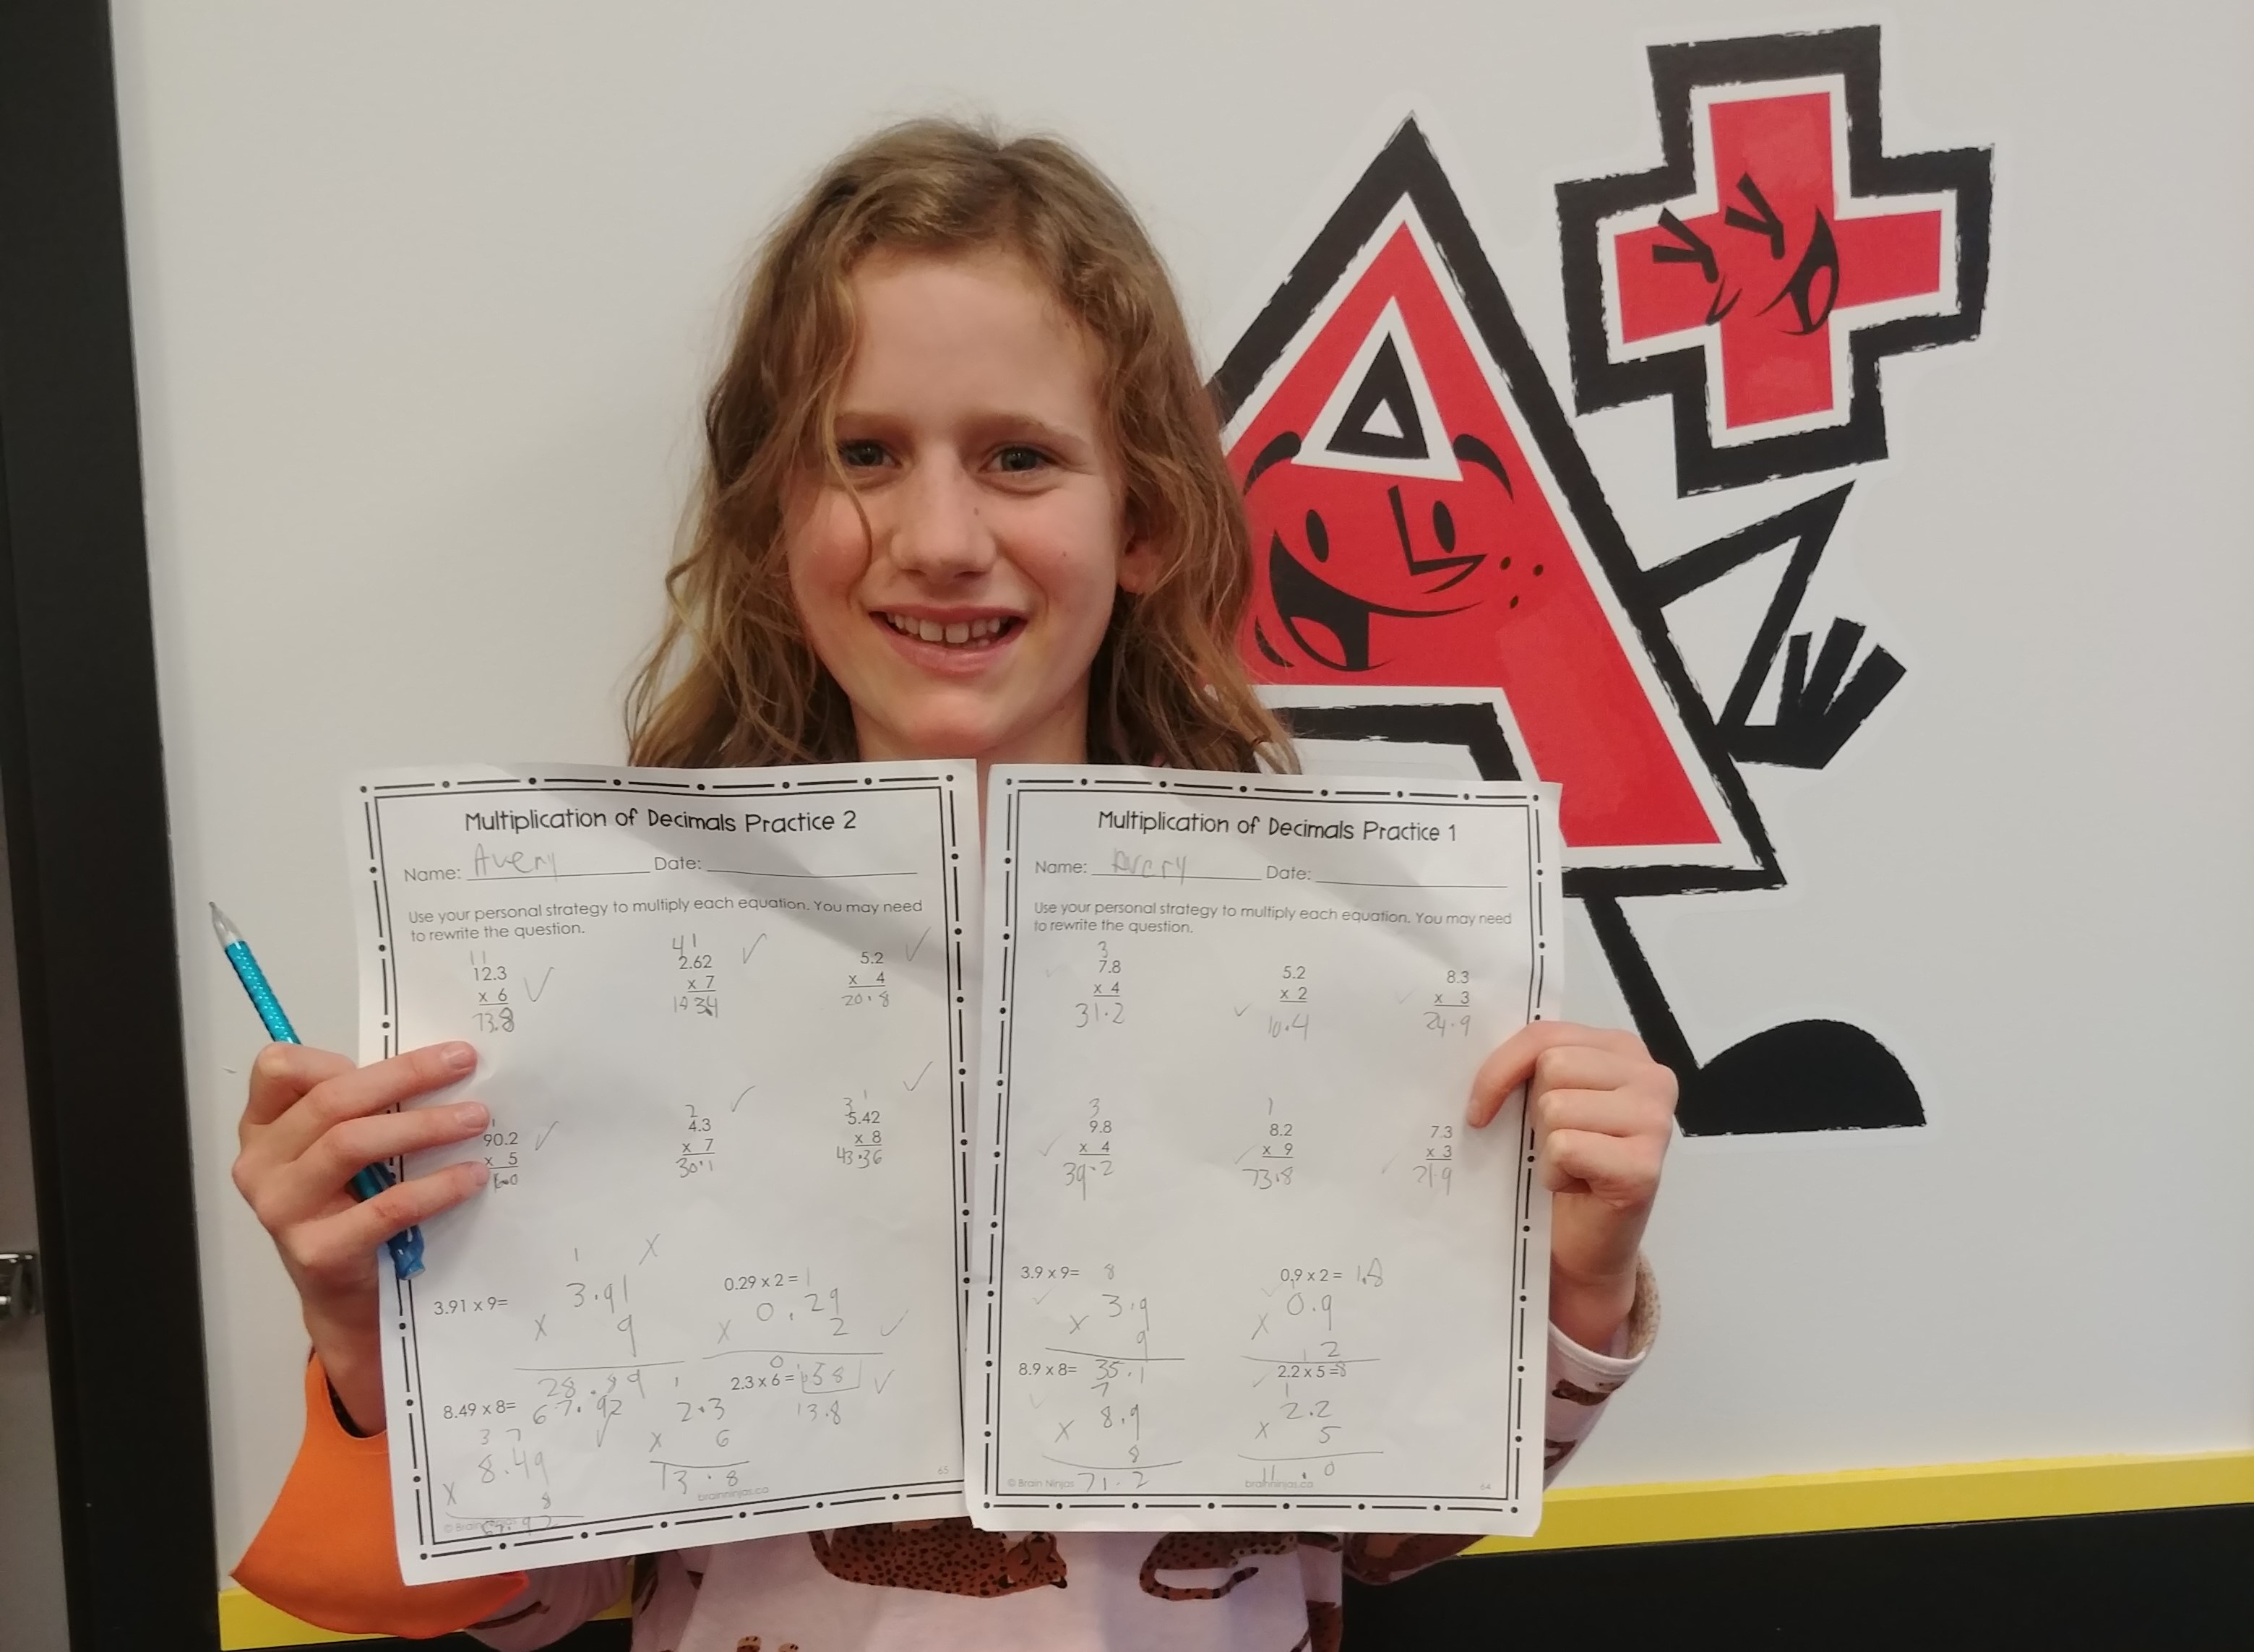 Multiplication of Decimals Practice 2
Name: Avery Date:
Use your personal strategy to multiply each equation. You may need
to rewrite the question.
1 1
12.3
x 6
73.8
4 1
2.62
x 7
5.2
x 4
20.8
1
90.2
x 5
2
4.3
x 7
30.1
3 1
5.42
x 8
43.36
3.91 x 9=
1
3.91
x 9
28.89
X
0.29 x 2 =
1
0.29
x 2
0.58
8.49 x 8= 67.92
3 7
8.49
x 8
67.92
2.3 x 6 = 13.8
1
2.3
x 6
13.8
brainninjas.ca
65
Multiplication of Decimals Practice 1
Name: Avery Date:
Use your personal strategy to multiply each equation. You may need
to rewrite the question.
3
7.8
x 4
31.2
5.2
x 2
10.4
8.3
x 3
24.9
3
9.8
x 4
39.2
1
8.2
x 9
73.8
7.3
x 3
21.9
3.9 x 9= 8
3.9
x 9
35.1
0.9 x 2 = 1.8
0.9
x 2
8.9 x 8=
7
8.9
x 8
71.2
2.2 x 5 =
1
2.2
x 5
11.0
© Brain Ninjas
brainninjas.ca
64